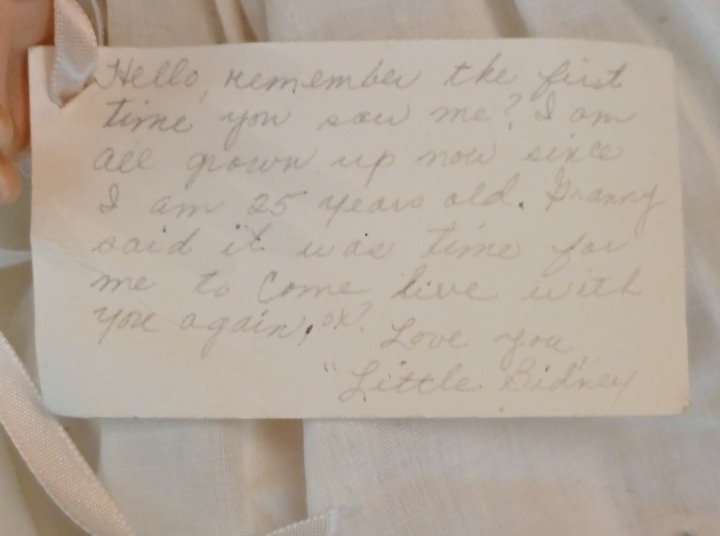 Hello, remember the first
time you saw me? I am
all grown up now since
I am 25 years old. Granny
said it was time for
me to come live with
you again, ok?
Love you,
"Little Bidney